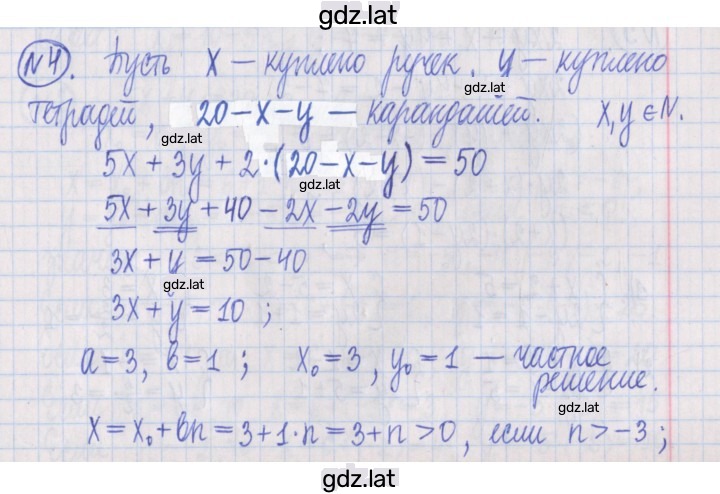 gdz.lat
№4. Пусть x – куплено ручек. y – куплено
gdz.lat
тетрадей, 20 – x – y – карандашей. x, y ∈ N.
gdz.lat
5x + 3y + 2·(20 – x – y) = 50
gdz.lat
5x + 3y + 40 – 2x – 2y = 50
3x + y = 50 – 40
gdz.lat
3x + y = 10 ;
a = 3, b = 1 ; x₀ = 3, y₀ = 1 – частное
решение.
gdz.lat
x = x₀ + bn = 3 + 1·n = 3 + n > 0, если n > –3 ;
gdz.lat